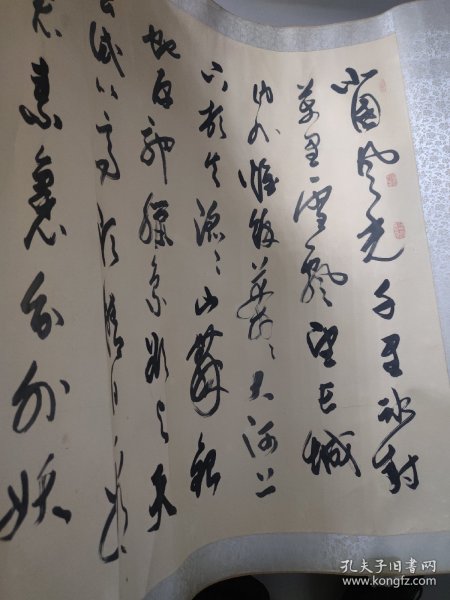 北國风光千里冰封
萬里雪飄望长城
内外惟餘莽莽大河上
下顿失滔滔山舞銀
蛇原馳臘象欲与天
试比高须晴日看
素裹分外妖
孔夫子旧书网
www.kongfz.com